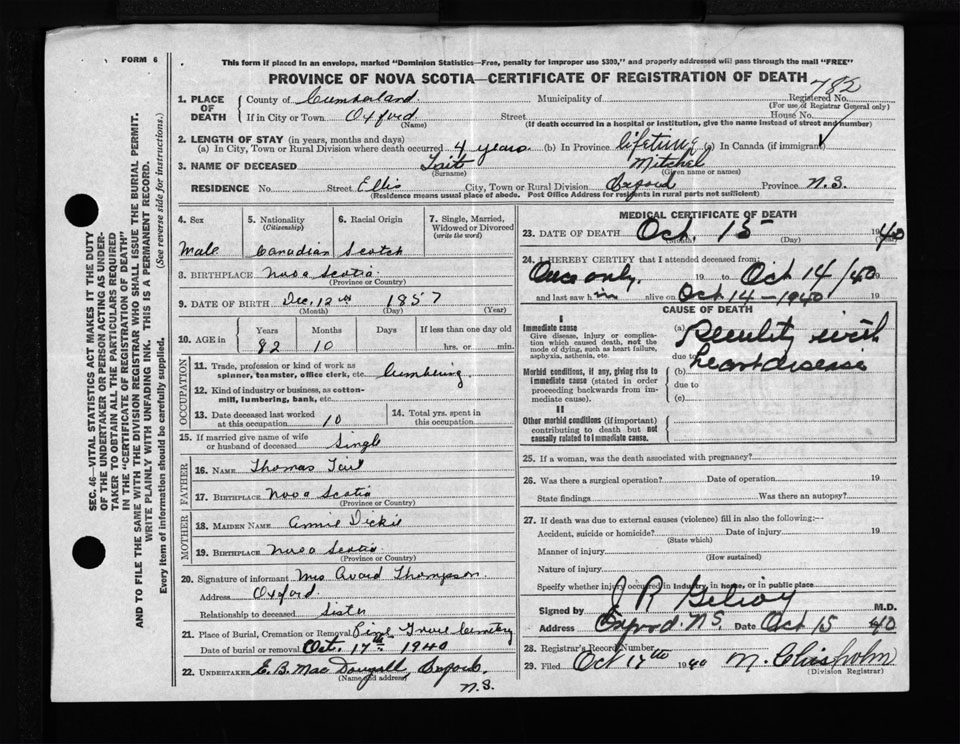 FORM 6
This form if placed in an envelope, marked "Dominion Statistics—Free, penalty for improper use $300," and properly addressed will pass through the mail "FREE"
PROVINCE OF NOVA SCOTIA—CERTIFICATE OF REGISTRATION OF DEATH
782
1. PLACE OF DEATH County of Cumberland Municipality of Registered No.
(For use of Registrar General only)
If in City or Town Oxford Street House No.
(Name) (If death occurred in a hospital or institution, give the name instead of street and number)
2. LENGTH OF STAY (in years, months and days)
(a) In City, Town or Rural Division where death occurred 4 years (b) In Province lifetime (c) In Canada (if immigrant)
3. NAME OF DECEASED Tait Mitchel
(Surname) (Given name or names)
RESIDENCE No. Street Ellis City, Town or Rural Division Oxford Province N.S.
(Residence means usual place of abode. Post Office Address for residents in rural parts not sufficient)
4. Sex 5. Nationality 6. Racial Origin 7. Single, Married, Widowed or Divorced
(Citizenship) (write the word)
Male Canadian Scotch
8. BIRTHPLACE Nova Scotia
(Province or Country)
9. DATE OF BIRTH Dec. 12th 1857
(Month) (Day) (Year)
10. AGE in Years Months Days If less than one day old
82 10 hrs. or min.
OCCUPATION
11. Trade, profession or kind of work as spinner, teamster, office clerk, etc. Lumbering
12. Kind of industry or business, as cotton-mill, lumbering, bank, etc.
13. Date deceased last worked at this occupation 10
14. Total yrs. spent in this occupation
15. If married give name of wife or husband of deceased Single
FATHER
16. NAME Thomas Tait
17. BIRTHPLACE Nova Scotia
(Province or Country)
MOTHER
18. MAIDEN NAME Annie Dickie
19. BIRTHPLACE Nova Scotia
(Province or Country)
20. Signature of informant Mrs Avard Thompson.
Address Oxford.
Relationship to deceased Sister
21. Place of Burial, Cremation or Removal Pine Grove Cemetery
Date of burial or removal Oct. 17th 1940
22. UNDERTAKER E. B. Mac Dougall, Oxford,
(Name and address)
N.S.
MEDICAL CERTIFICATE OF DEATH
23. DATE OF DEATH Oct 15 1940
(Month) (Day) (Year)
24. I HEREBY CERTIFY that I attended deceased from:
Once only. 19 to Oct 14/40 19
and last saw him alive on Oct 14-1940 19
CAUSE OF DEATH
I
Immediate cause
Give disease, injury or complication which caused death, not the mode of dying, such as heart failure, asphyxia, asthenia, etc.
(a) Senility with
due to
heart disease
(b)
due to
(c)
Morbid conditions, if any, giving rise to immediate cause (stated in order proceeding backwards from immediate cause).
II
Other morbid conditions (if important) contributing to death but not causally related to immediate cause.
25. If a woman, was the death associated with pregnancy?
26. Was there a surgical operation? Date of operation 19
State findings Was there an autopsy?
27. If death was due to external causes (violence) fill in also the following:—
Accident, suicide or homicide? Date of injury 19
(State which)
Manner of injury
(How sustained)
Nature of injury
Specify whether injury occurred in Industry, in home, or in public place
Signed by J R Gilroy M.D.
Address Oxford N.S. Date Oct 15 40
28. Registrar's Record Number
29. Filed Oct 17th 1940 M. Chisholm
(Division Registrar)
SEC. 46—VITAL STATISTICS ACT MAKES IT THE DUTY
OF THE UNDERTAKER OR PERSON ACTING AS UNDER-
TAKER TO OBTAIN ALL THE PARTICULARS REQUIRED
IN THE "CERTIFICATE OF REGISTRATION OF DEATH"
AND TO FILE THE SAME WITH THE DIVISION REGISTRAR WHO SHALL ISSUE THE BURIAL PERMIT.
WRITE PLAINLY WITH UNFADING INK. THIS IS A PERMANENT RECORD.
Every item of information should be carefully supplied. (See reverse side for instructions.)